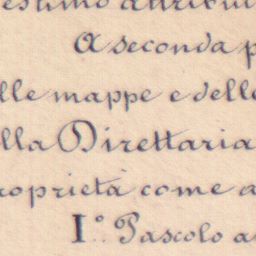 estimo attribui
A seconda p
lle mappe e delle
lla Direttaria
roprietà come a
I°. Pascolo a